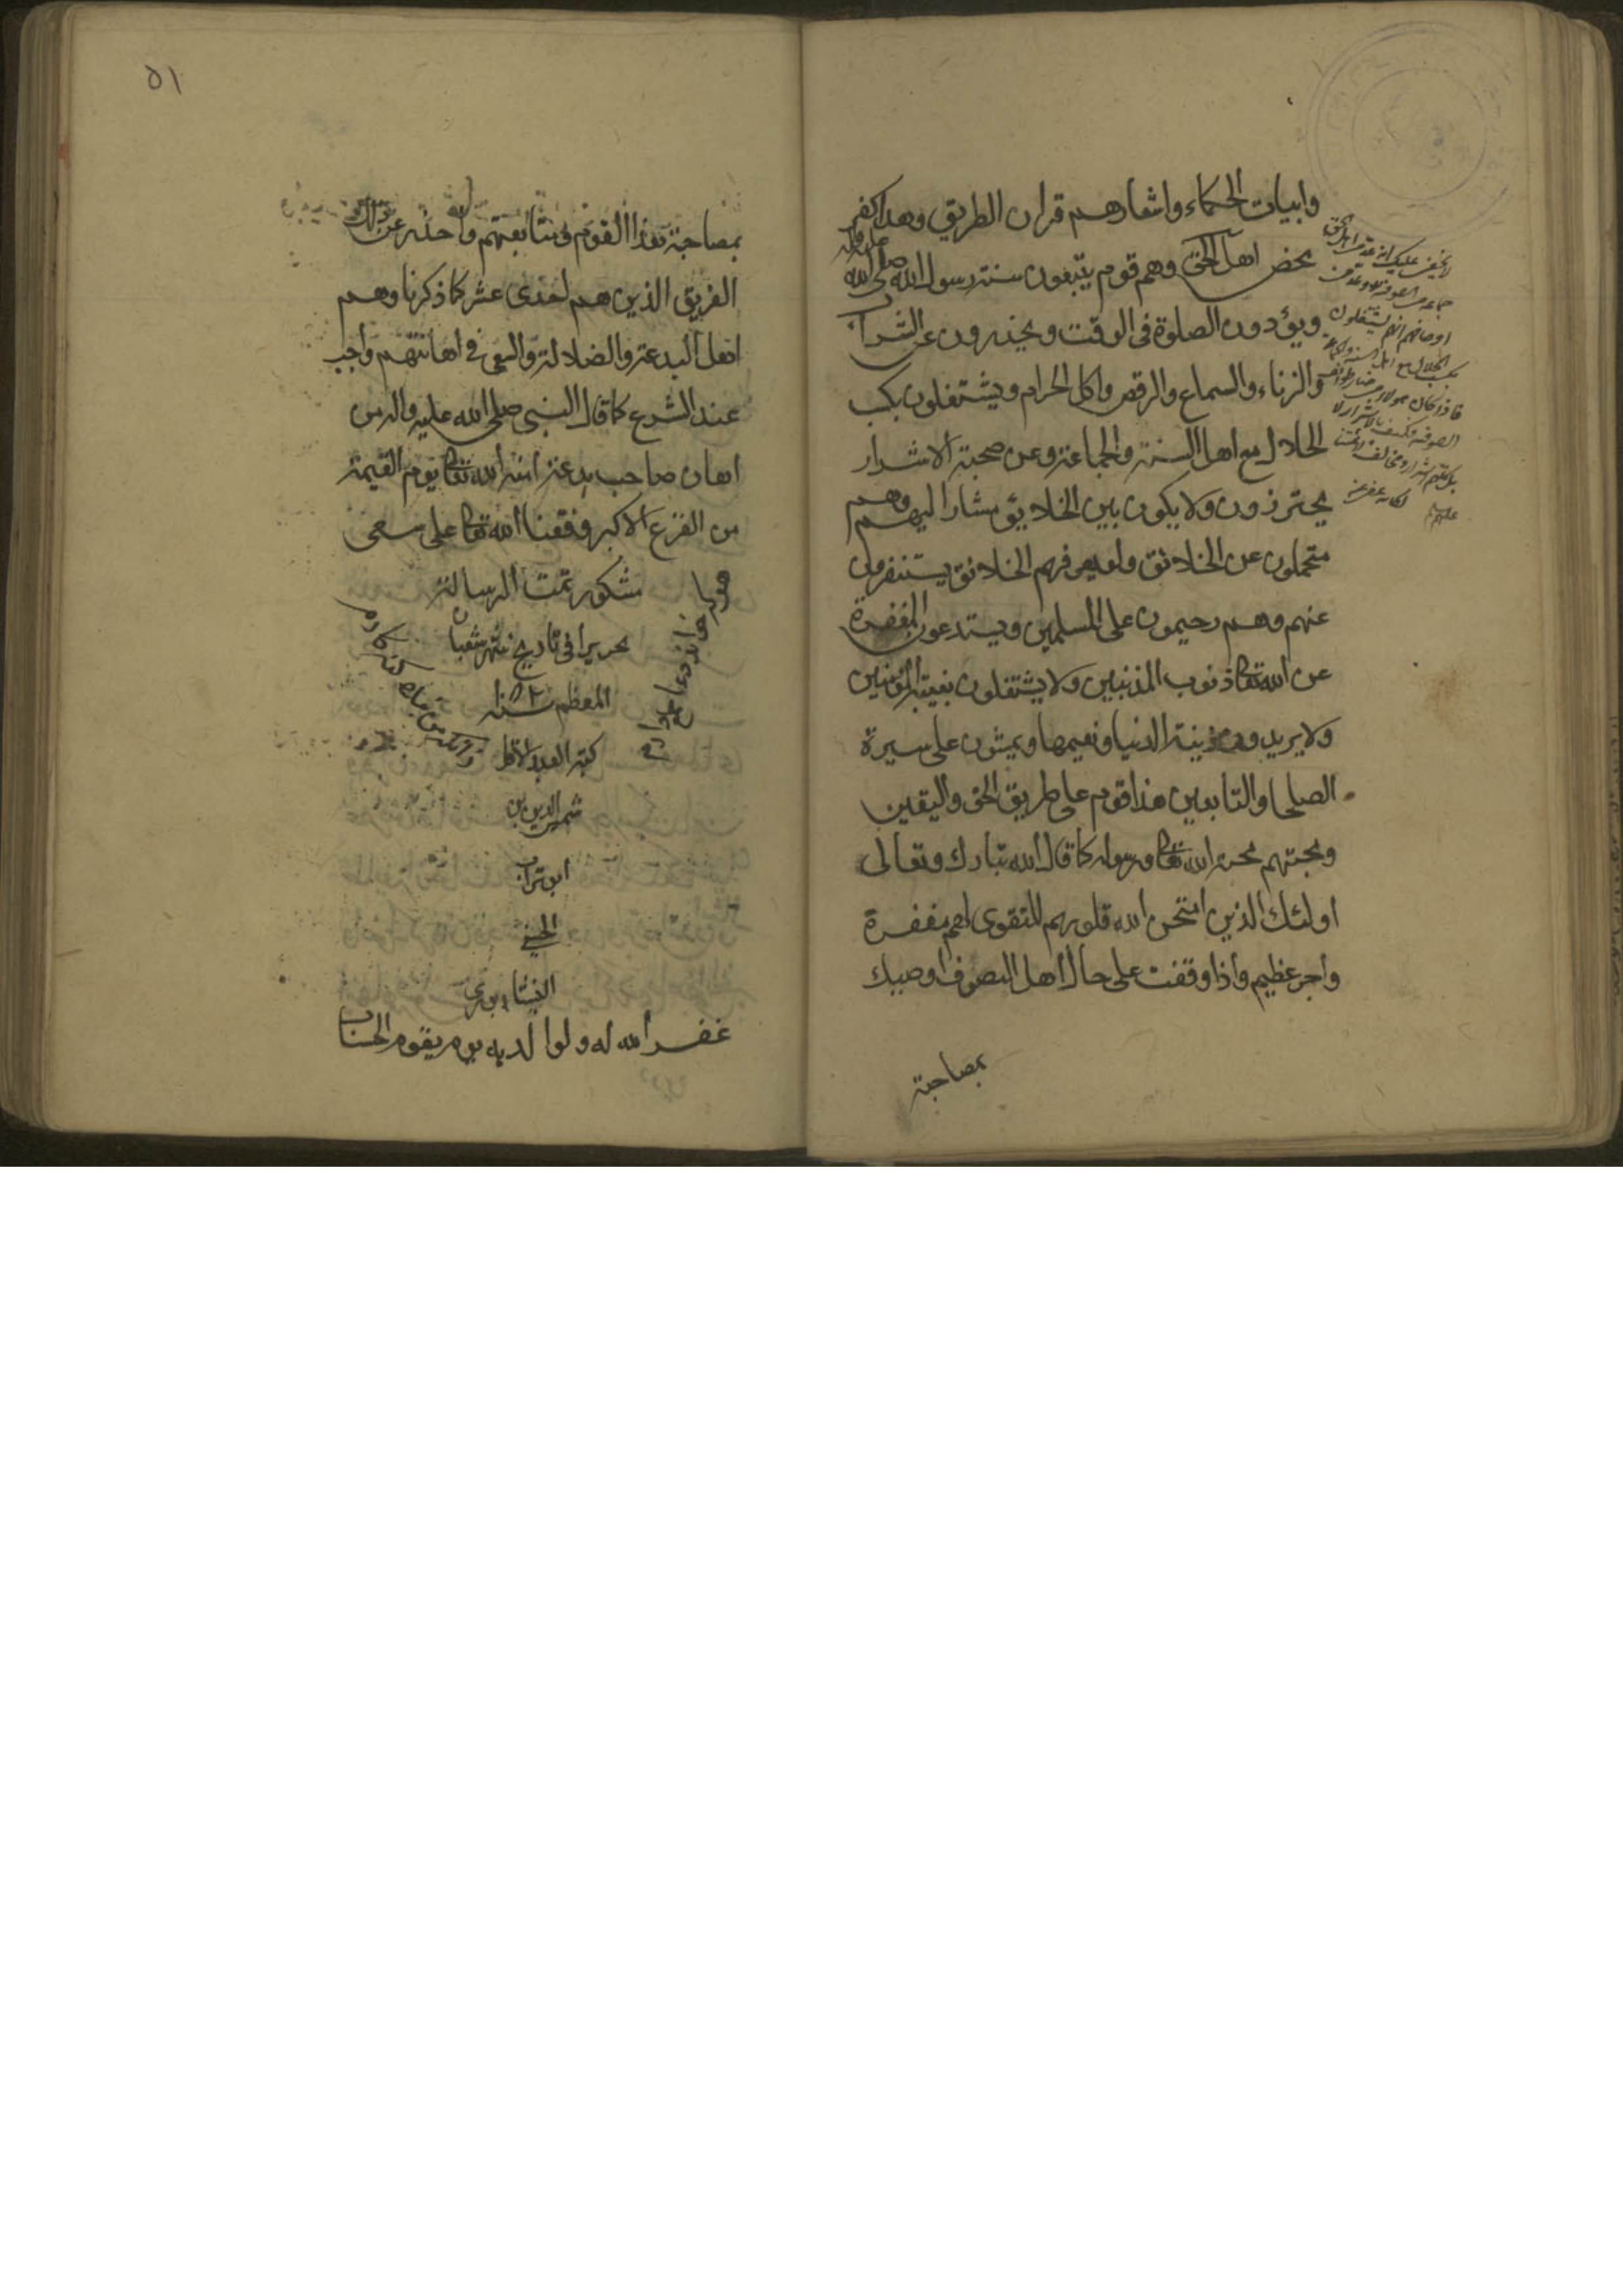 وابيات الحكماء واشعارهم قران الطريق وهذا كفر
محض اهل الحق وهم قوم يتبعون سنة رسول الله صلى الله
عليه واله
ويؤدون الصلوة فى الوقت ويحذرون عن الشراب
والزناء والسماع والرقص واكل الحرام ويشتغلون بكسب
الحلال مع اهل السنة والجماعة وعن صحبة الاشرار
يحترزون ولا يكون بين الخلايق مشارا اليهم وهم
متحملون عن الخلائق ولو يعرفهم الخلائق يستنفرون
عنهم وهم رحيمون على المسلمين ويستدعون المغفرة
عن الله تعالى ذنوب المذنبين ولا يشتغلون بغيبة المؤمنين
ولا يريدون زينة الدنيا ونعيمها ويمشون على سيرة
الصلحا والتابعين هذا قوم على طريق الحق واليقين
ومحبتهم محبة الله تعالى ورسوله كما قال الله تبارك وتعالى
اولئك الذين امتحن الله قلوبهم للتقوى لهم مغفرة
واجر عظيم واذا وقفت على حال اهل التصوف اوصيك
بمصاحبة
لا يخفى عليك انه عد من اهل الحق
جماعة من الصوفية وعد من
اوصافهم انهم يشتغلون
بكسب الحلال مع اهل السنة والجماعة
فاذا كان هؤلاء من خيار طوائف
الصوفية فكيف بالاشرار
٥١
بمصاحبة هذا القوم ومتابعتهم واحذر عن تلك
الفريق الذين هم احدى عشر كما ذكرنا وهم
اهل البدعة والضلالة والسعى فى اهانتهم واجب
عند الشرع كما قال النبى صلى الله عليه واله من
اهان صاحب بدعة امنه الله تعالى يوم القيمة
من الفزع الاكبر وفقنا الله تعالى على سعى
مشكور تمت الرسالة
تحريرا فى تاريخ شهر شعبان
المعظم سنة
كتبه العبد الاقل
شمس الدين بن
ابو تراب
الحسنى
النيشابورى
غفر الله له ولوالديه يوم يقوم الحساب
هر كه خواند دعا طمع دارم
زانكه من بنده گنه كارم